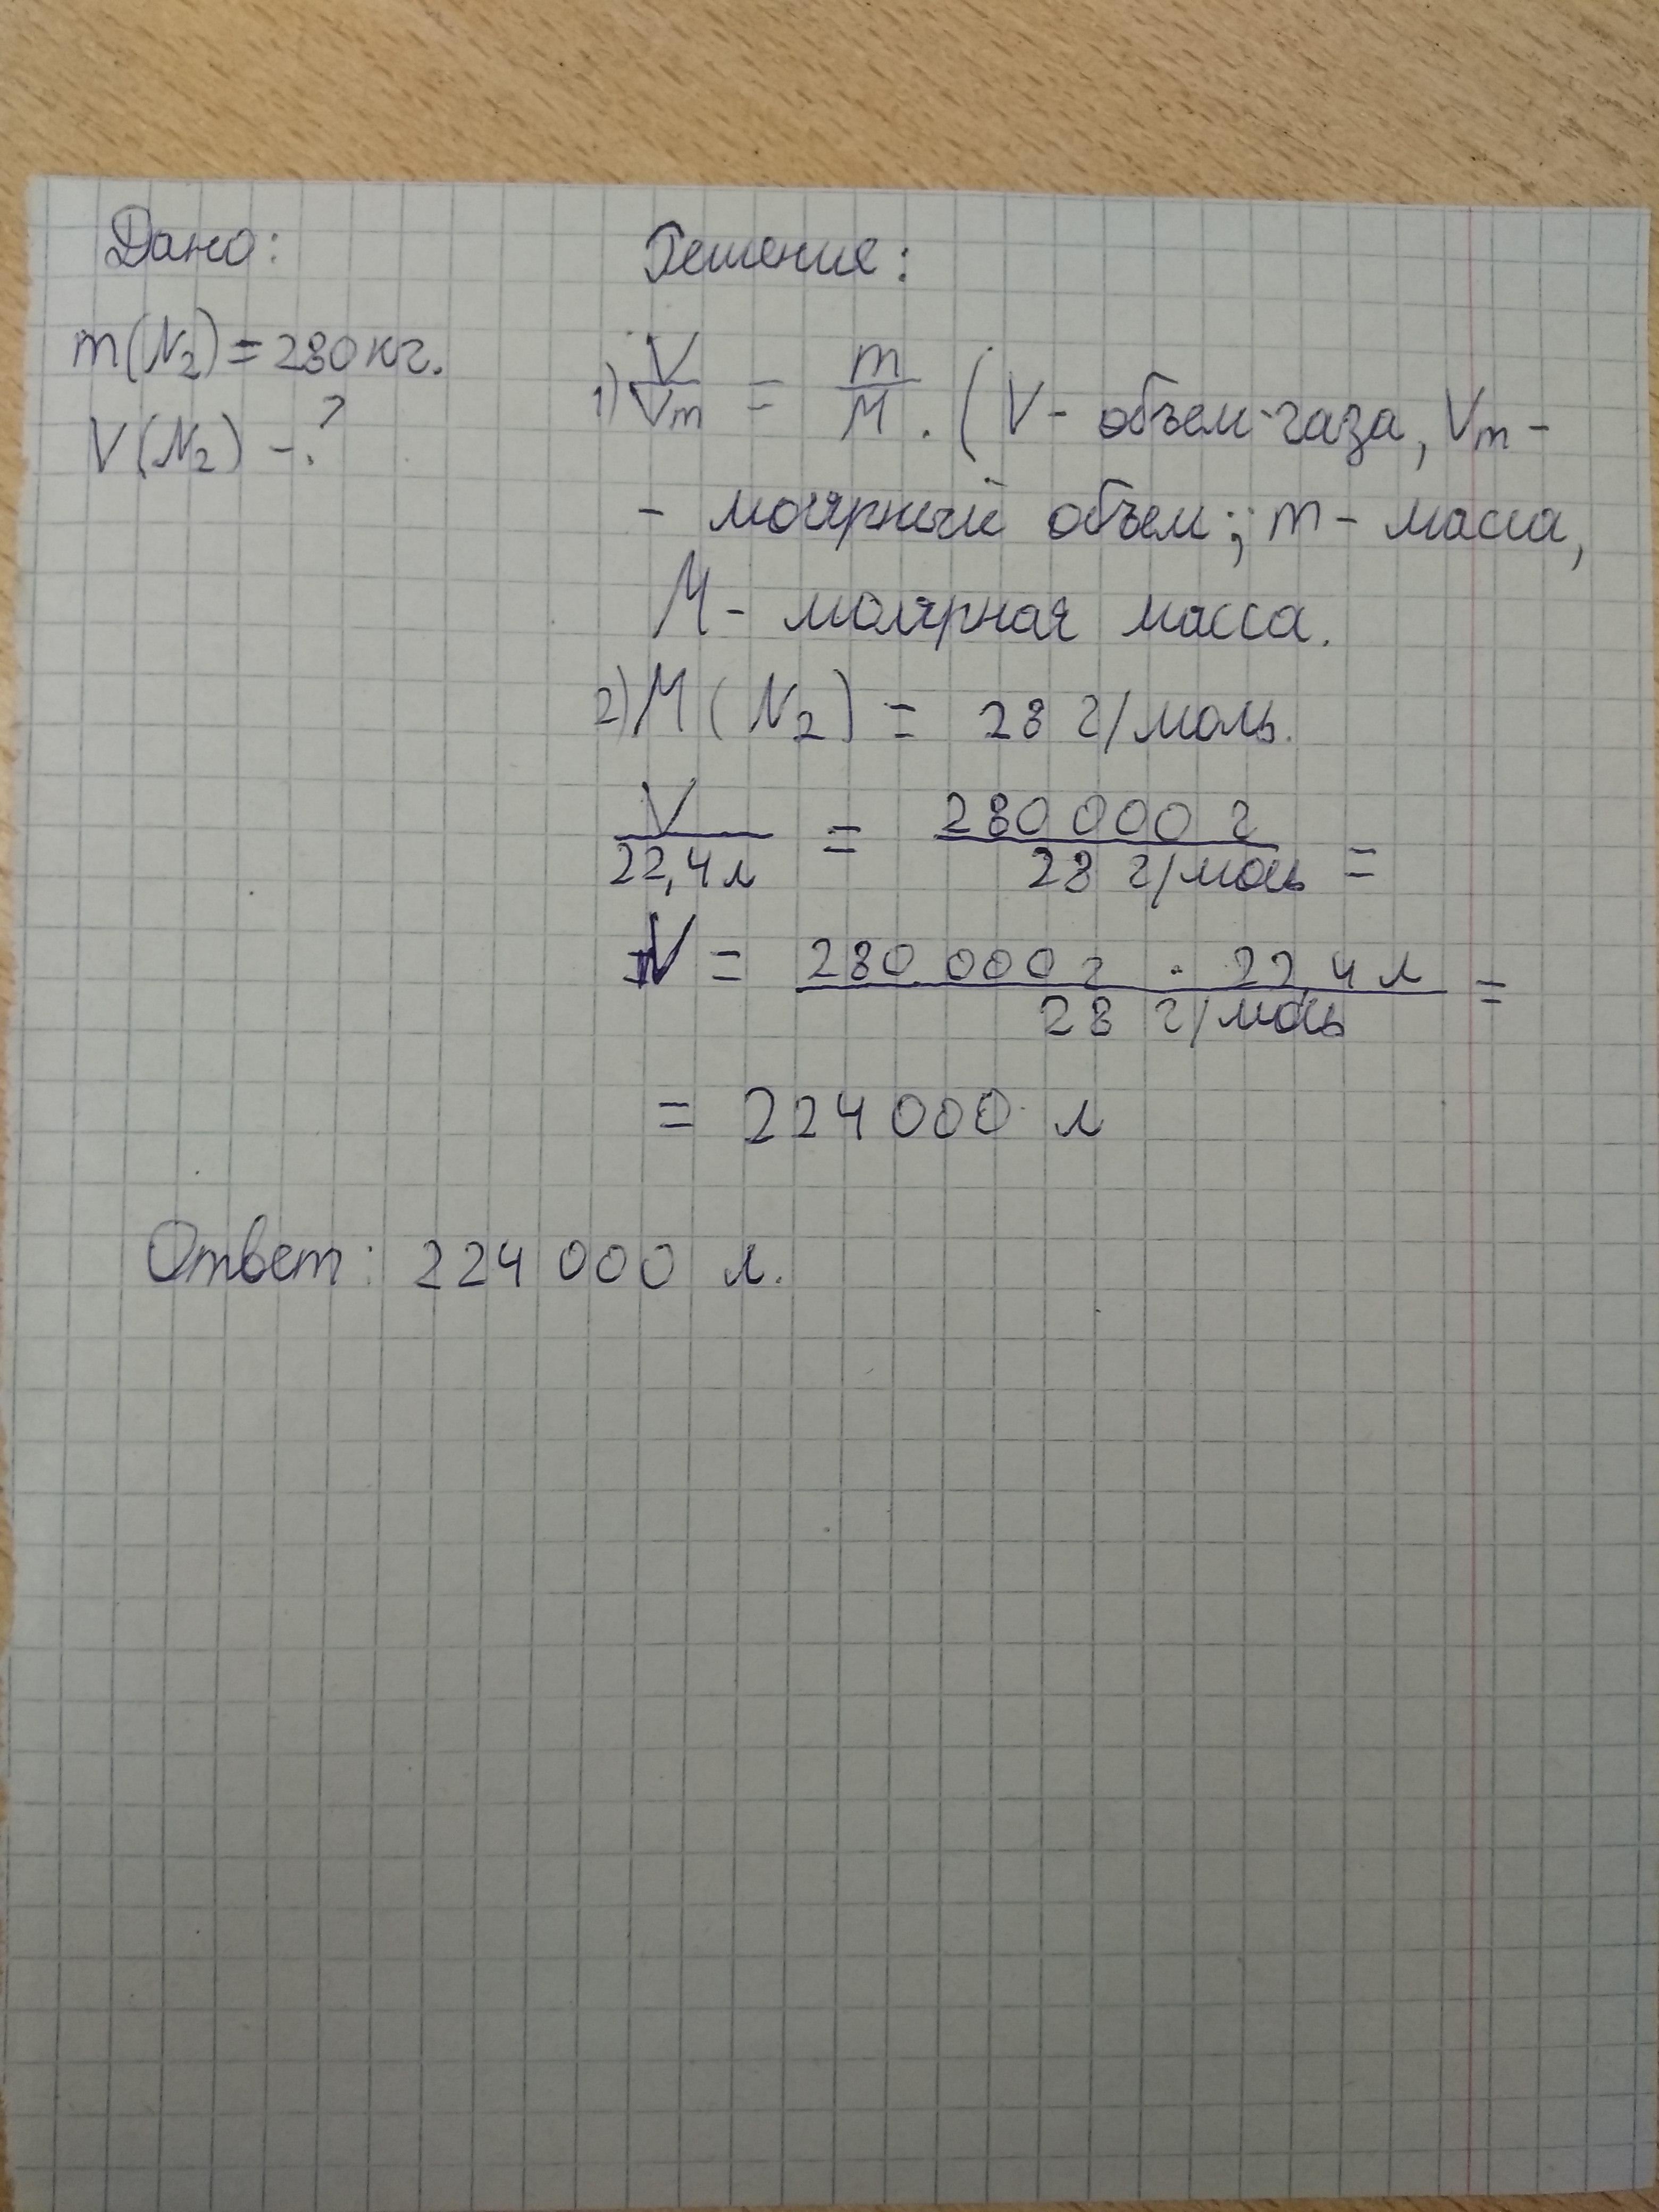 Дано:
Решение:
m(N₂) = 280 кг.
V(N₂) - ?
1) V/Vm = m/M. (V - объем газа, Vm -
- молярный объем; m - масса,
M - молярная масса.
2) M(N₂) = 28 г/моль.
V/22,4 л = 280 000 г/28 г/моль =
V = 280 000 г · 22,4 л/28 г/моль =
= 224 000 л
Ответ: 224 000 л.